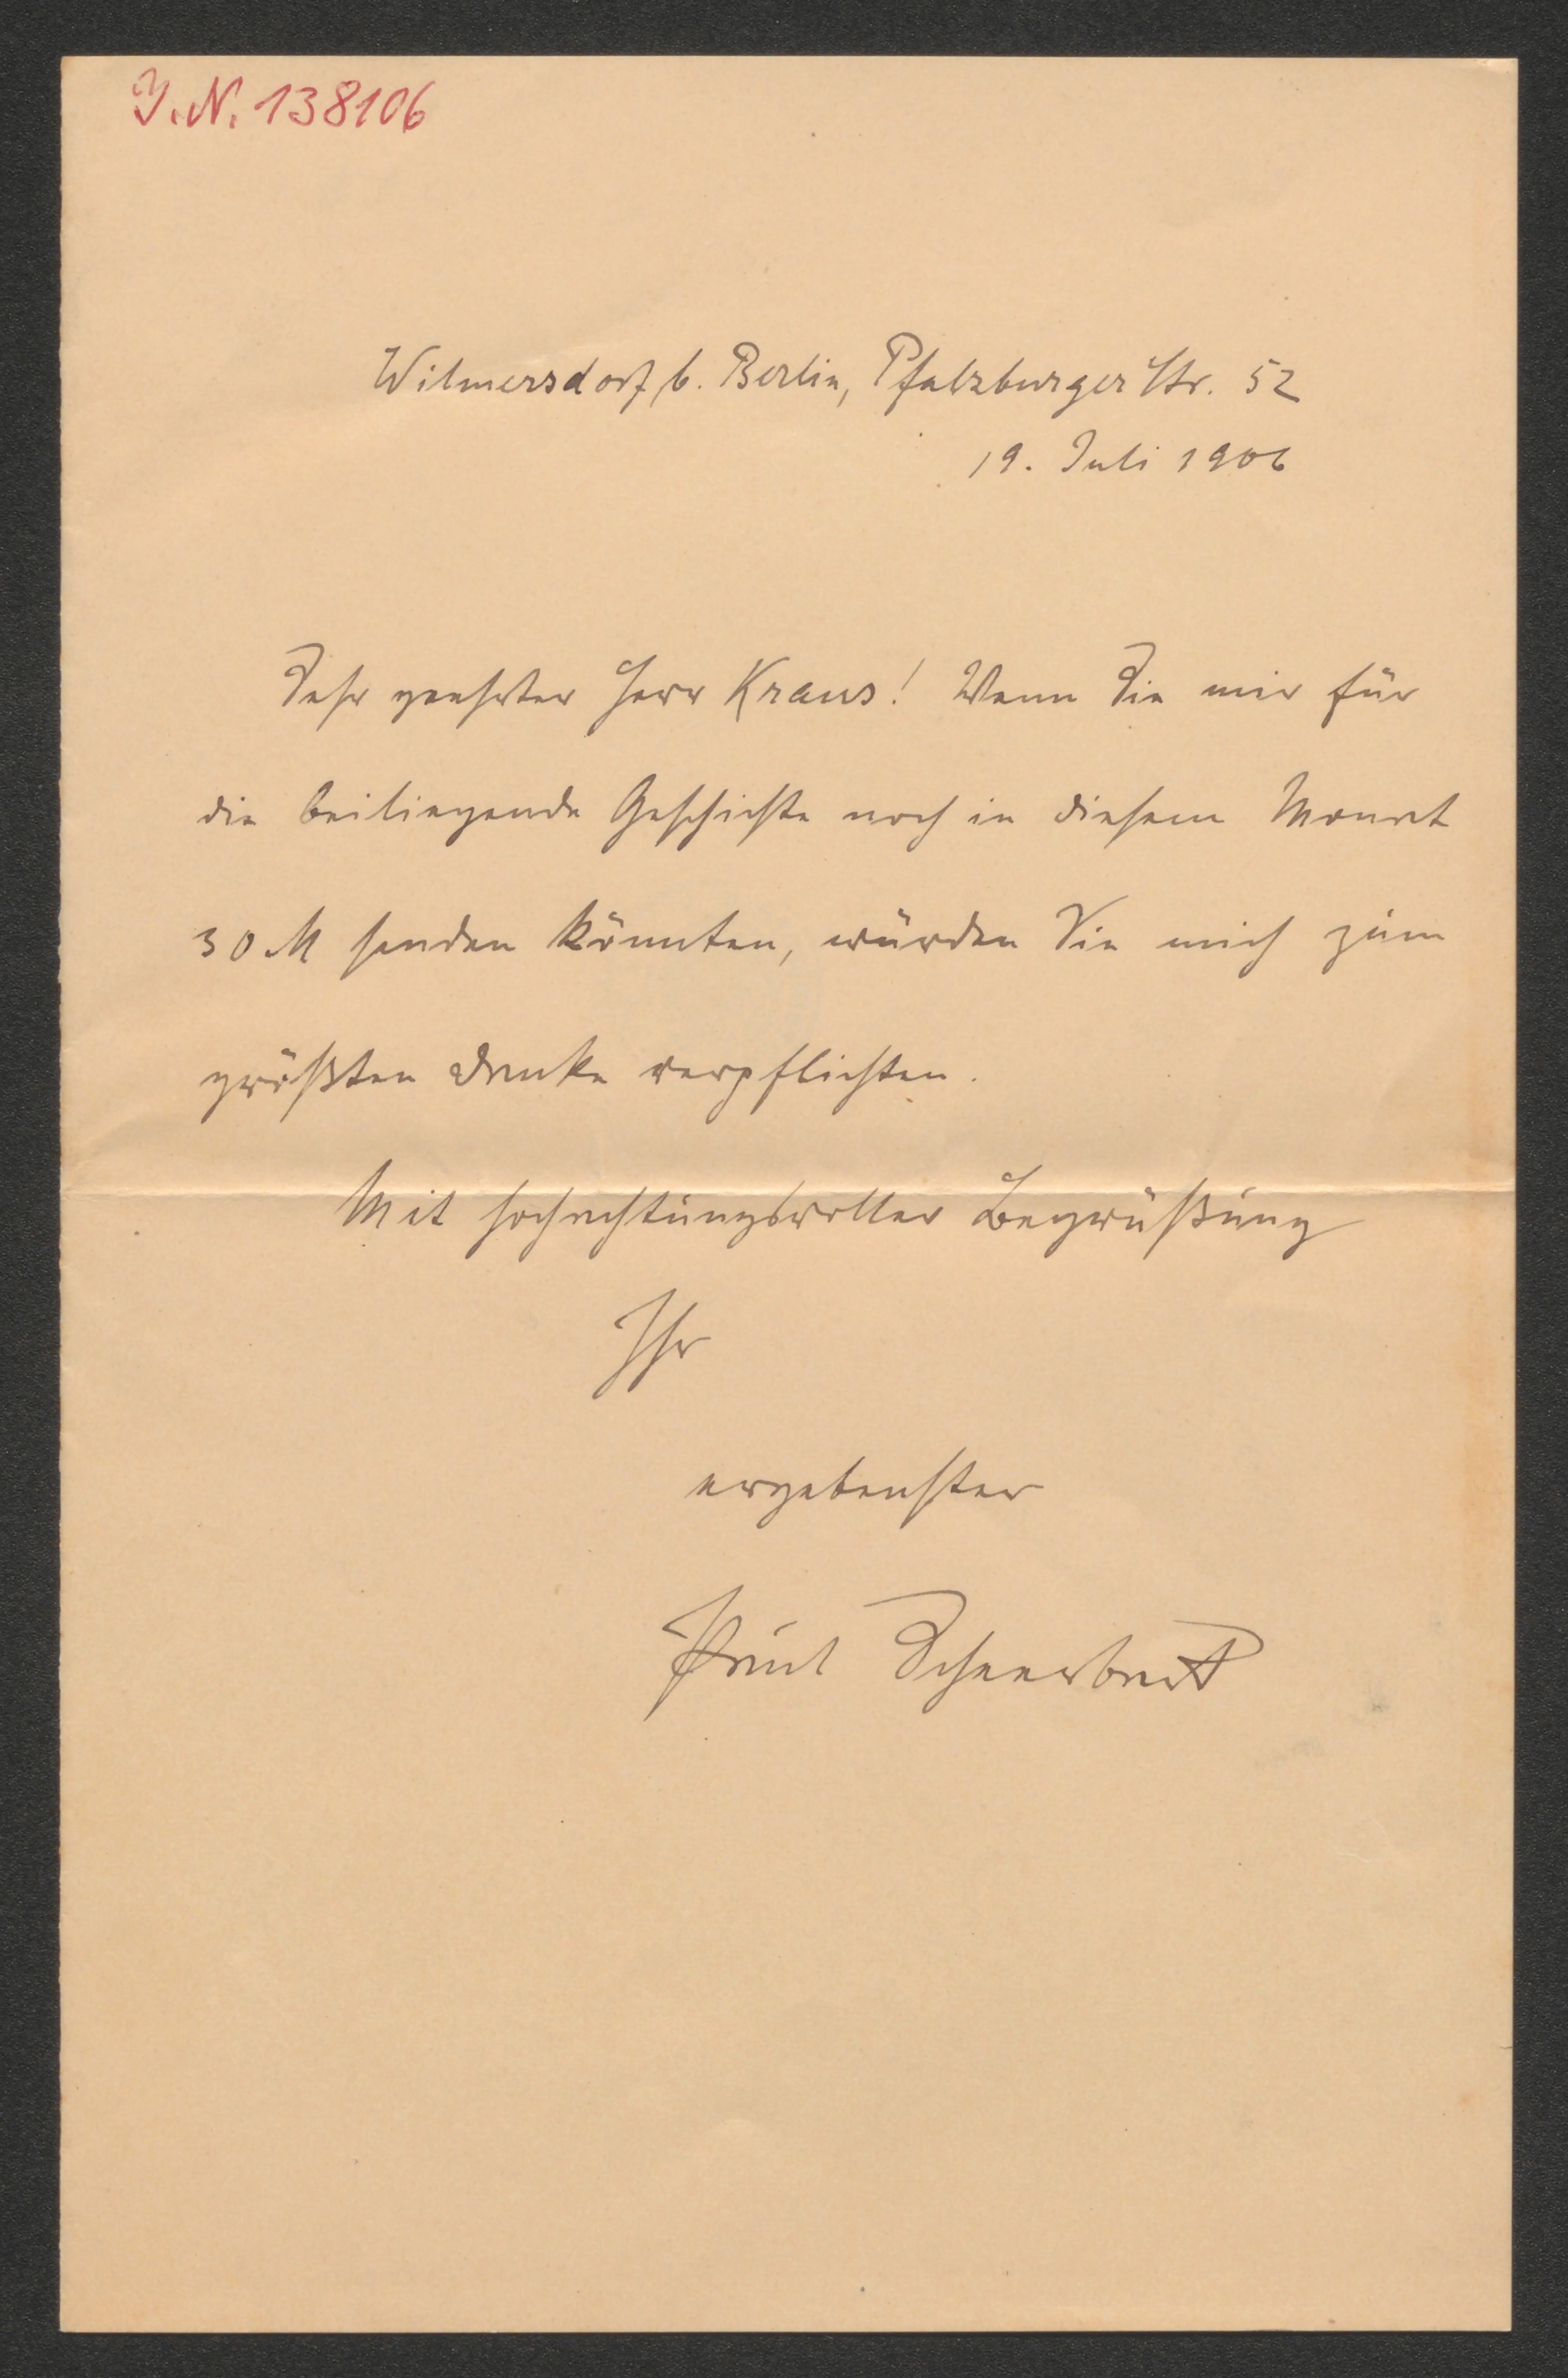 I.N. 138106
Wilmersdorf b. Berlin, Pfalzburger Str. 52
19. Juli 1906
Sehr geehrter Herr Kraus! Wenn Sie mir für
die beiliegende Geschichte noch in diesem Monat
30 M senden könnten, würden Sie mich zum
größten Danke verpflichten.
Mit hochachtungsvoller Begrüßung
Ihr
ergebenster
Paul Scheerbart